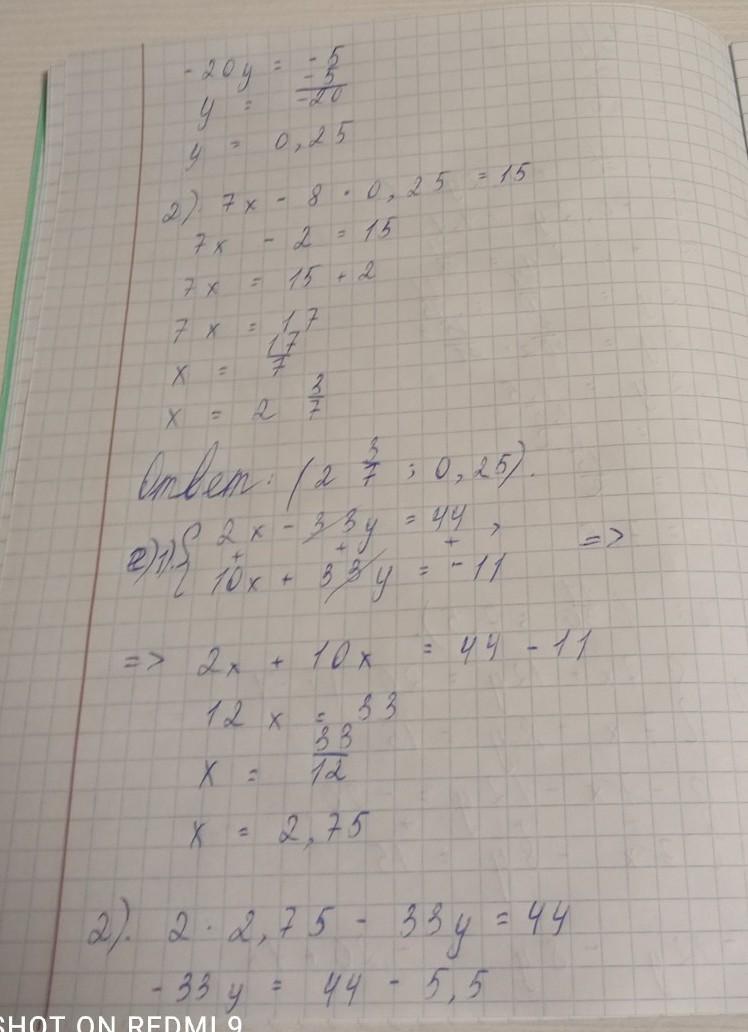 -20y = -5
y = -5/-20
y = 0,25
2). 7x - 8 · 0,25 = 15
7x - 2 = 15
7x = 15 + 2
7x = 17
x = 17/7
x = 2 3/7
Ответ: (2 3/7 ; 0,25).
е)1). { 2x - 33y = 44, =>
+ + +
10x + 33y = -11
=> 2x + 10x = 44 - 11
12x = 33
x = 33/12
x = 2,75
2). 2 · 2,75 - 33y = 44
-33y = 44 - 5,5
SHOT ON REDMI 9